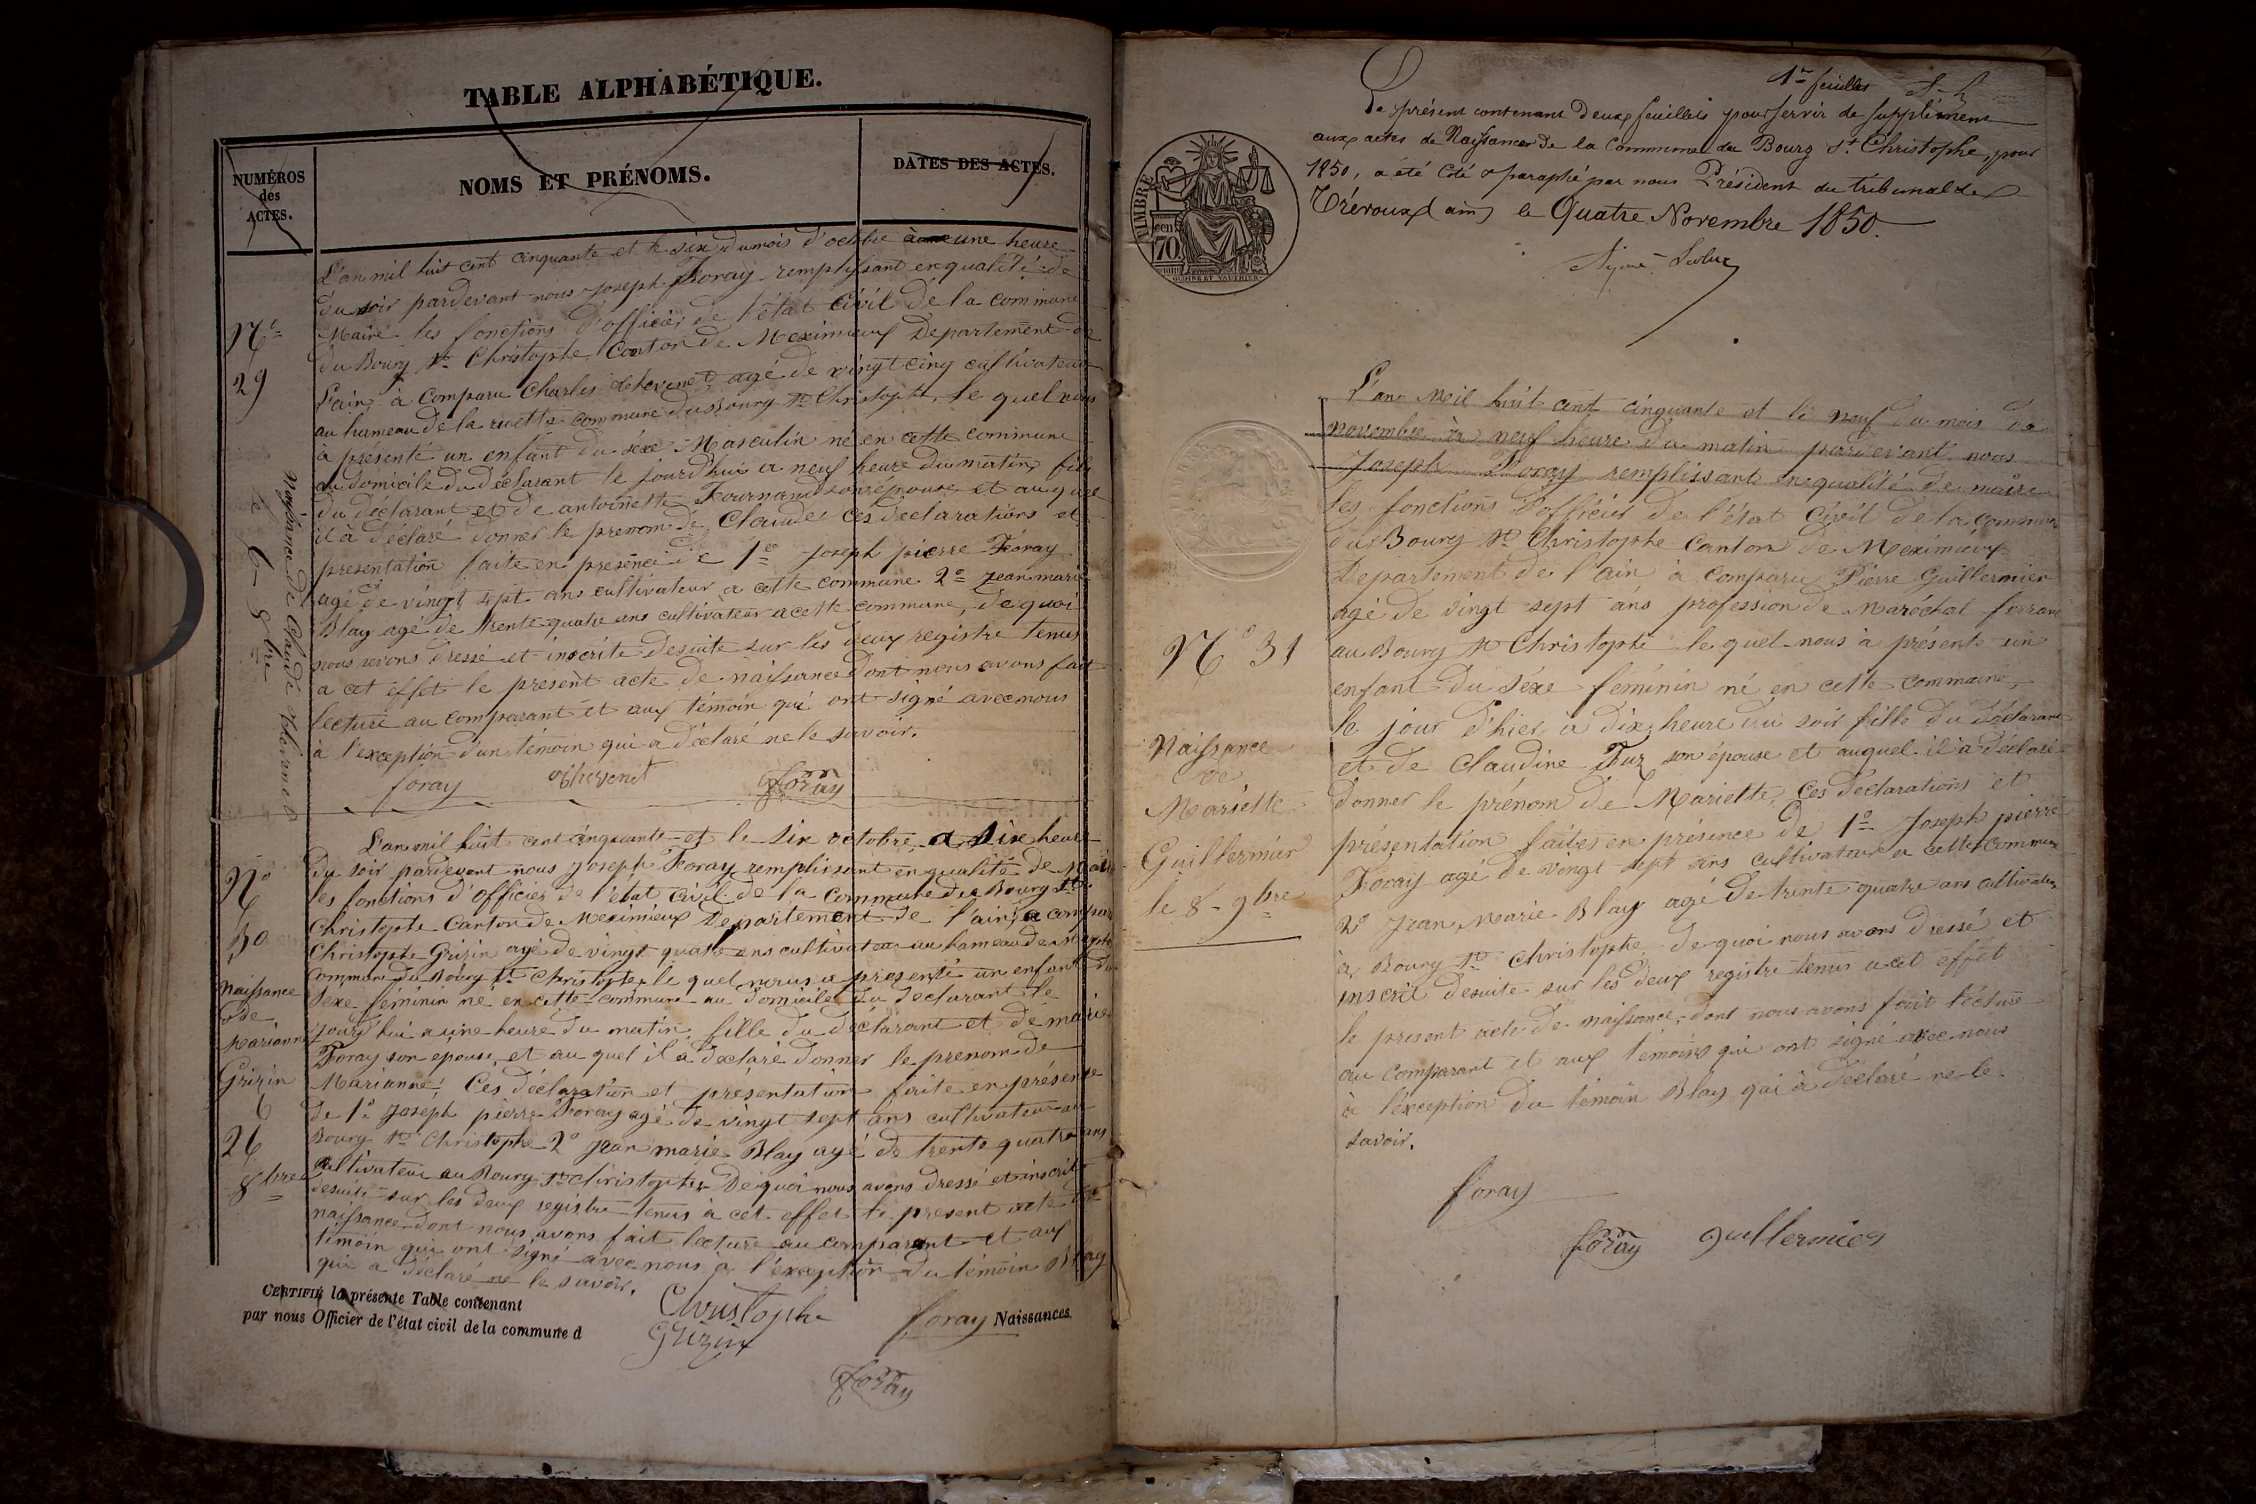 TABLE ALPHABÉTIQUE.
NUMÉROS
des
ACTES.
NOMS ET PRÉNOMS.
DATES DES ACTES.
N°
29
Naissance de Claude thevenet
le 6 - 8bre
L'an mil huit cent cinquante et le six du mois d'octobre à une heure
du soir pardevant nous Joseph Foray remplissant en qualité de
Maire les fonctions d'officier de l'état civil de la commune
du Bourg St Christophe Canton de Meximieux Departement de
l'ain, à comparu Charles thevenet agé de vingt cinq cultivateur
au hameau de la ruette commune du Bourg St Christophe, le quel nous
à presenté un enfant du séxe Masculin né en cette commune
au domicile du déclarant le jourd'hui a neuf heure du matin, fils
du déclarant et de antoinette son épouse et au quel
il à déclaré donner le prenom de Claude Ces declarations et
presentation faite en presence de 1° Joseph pierre Foray
agé de vingt sept ans cultivateur a cette commune 2° jean marie
Blay agé de trente quatre ans cultivateur a cette commune, de quoi
nous avons dressé et inscrite desuite sur les deux registre tenus
a cet effet le present acte de naissance dont nous avons fait
lecture au comparant et aux témoin qui ont signé avec nous
à l'exception d'un témoin qui a déclaré ne le savoir.
foray thevenet foray
N°
30
naissance
de
Marianne
Grizin
6
26
8bre
L'an mil huit cent cinquante et le six octobre a six heure
du soir pardevant nous Joseph Foray remplissant en qualité de Maire
les fonctions d'officier de l'état civil de la commune du Bourg St
Christophe Canton de Meximieux Departement de l'ain, a comparu
Christophe Grizin agé de vingt quatre ans cultivateur au hameau de
commune du Bourg St Christophe, le quel nous a presenté un enfant du
sexe féminin né en cette commune au domicile du declarant le
jourd'hui a une heure du matin, fille du déclarant et de marie
Foray son epouse, et au quel il a declaré donner le prenom de
Marianne; Ces déclaration et présentation faite en présence
de 1° Joseph pierre Foray agé de vingt sept ans cultivateur au
Bourg St Christophe 2° jean marie Blay agé de trente quatre ans
cultivateur au Bourg St Christophe De quoi nous avons dressé et inscrit
desuite sur les deux registre tenus à cet effet le present acte de
naissance dont nous avons fait lecture au comparant et aux
témoin qui ont signé avec nous à l'exception du témoin Blay
qui a déclaré ne le savoir.
CERTIFIÉ la présente Table contenant
par nous Officier de l'état civil de la commune d
Christophe
Grizin
foray Naissances
foray
1er feuillet
Le présent contenant deux feuillets pour servir de supplément
aux actes de Naissances de la Commune du Bourg St Christophe, pour
1850, a été coté & paraphé par nous Président du tribunal de
Trévoux (ain) le Quatre Novembre 1850.
TIMBRE
70
cen
N° 31
Naissance
de
Mariette
Guillermier
le 8 - 9bre
L'an Mil huit cent cinquante et le neuf du mois de
novembre à neuf heure du matin pardevant nous
Joseph Foray remplissant en qualité de maire
les fonctions d'officier de l'état civil de la commune
du Bourg St Christophe Canton de Meximieux
Departement de l'ain, à comparu Pierre Guillermier
agé de vingt sept ans profession de Maréchal ferrant
au Bourg St Christophe le quel nous à présenté un
enfant du séxe féminin né en cette commune,
le jour d'hier à dix heure du soir fille du déclarant
et de Claudine son épouse et auquel il à déclaré
donner le prénom de Mariette, Ces declarations et
présentation faites en présence de 1° Joseph pierre
Foray agé de vingt sept ans cultivateur a cette commune
2° Jean Marie Blay agé de trente quatre ans cultivateur
à Bourg St christophe, de quoi nous avons dressé et
inscrit desuite sur les deux registre tenus a cet effet
le present acte de naissance, dont nous avons fait lecture
au comparant et aux témoins qui ont signé avec nous
à l'exception du témoin Blay qui à déclaré ne le
savoir.
foray
foray guillermier